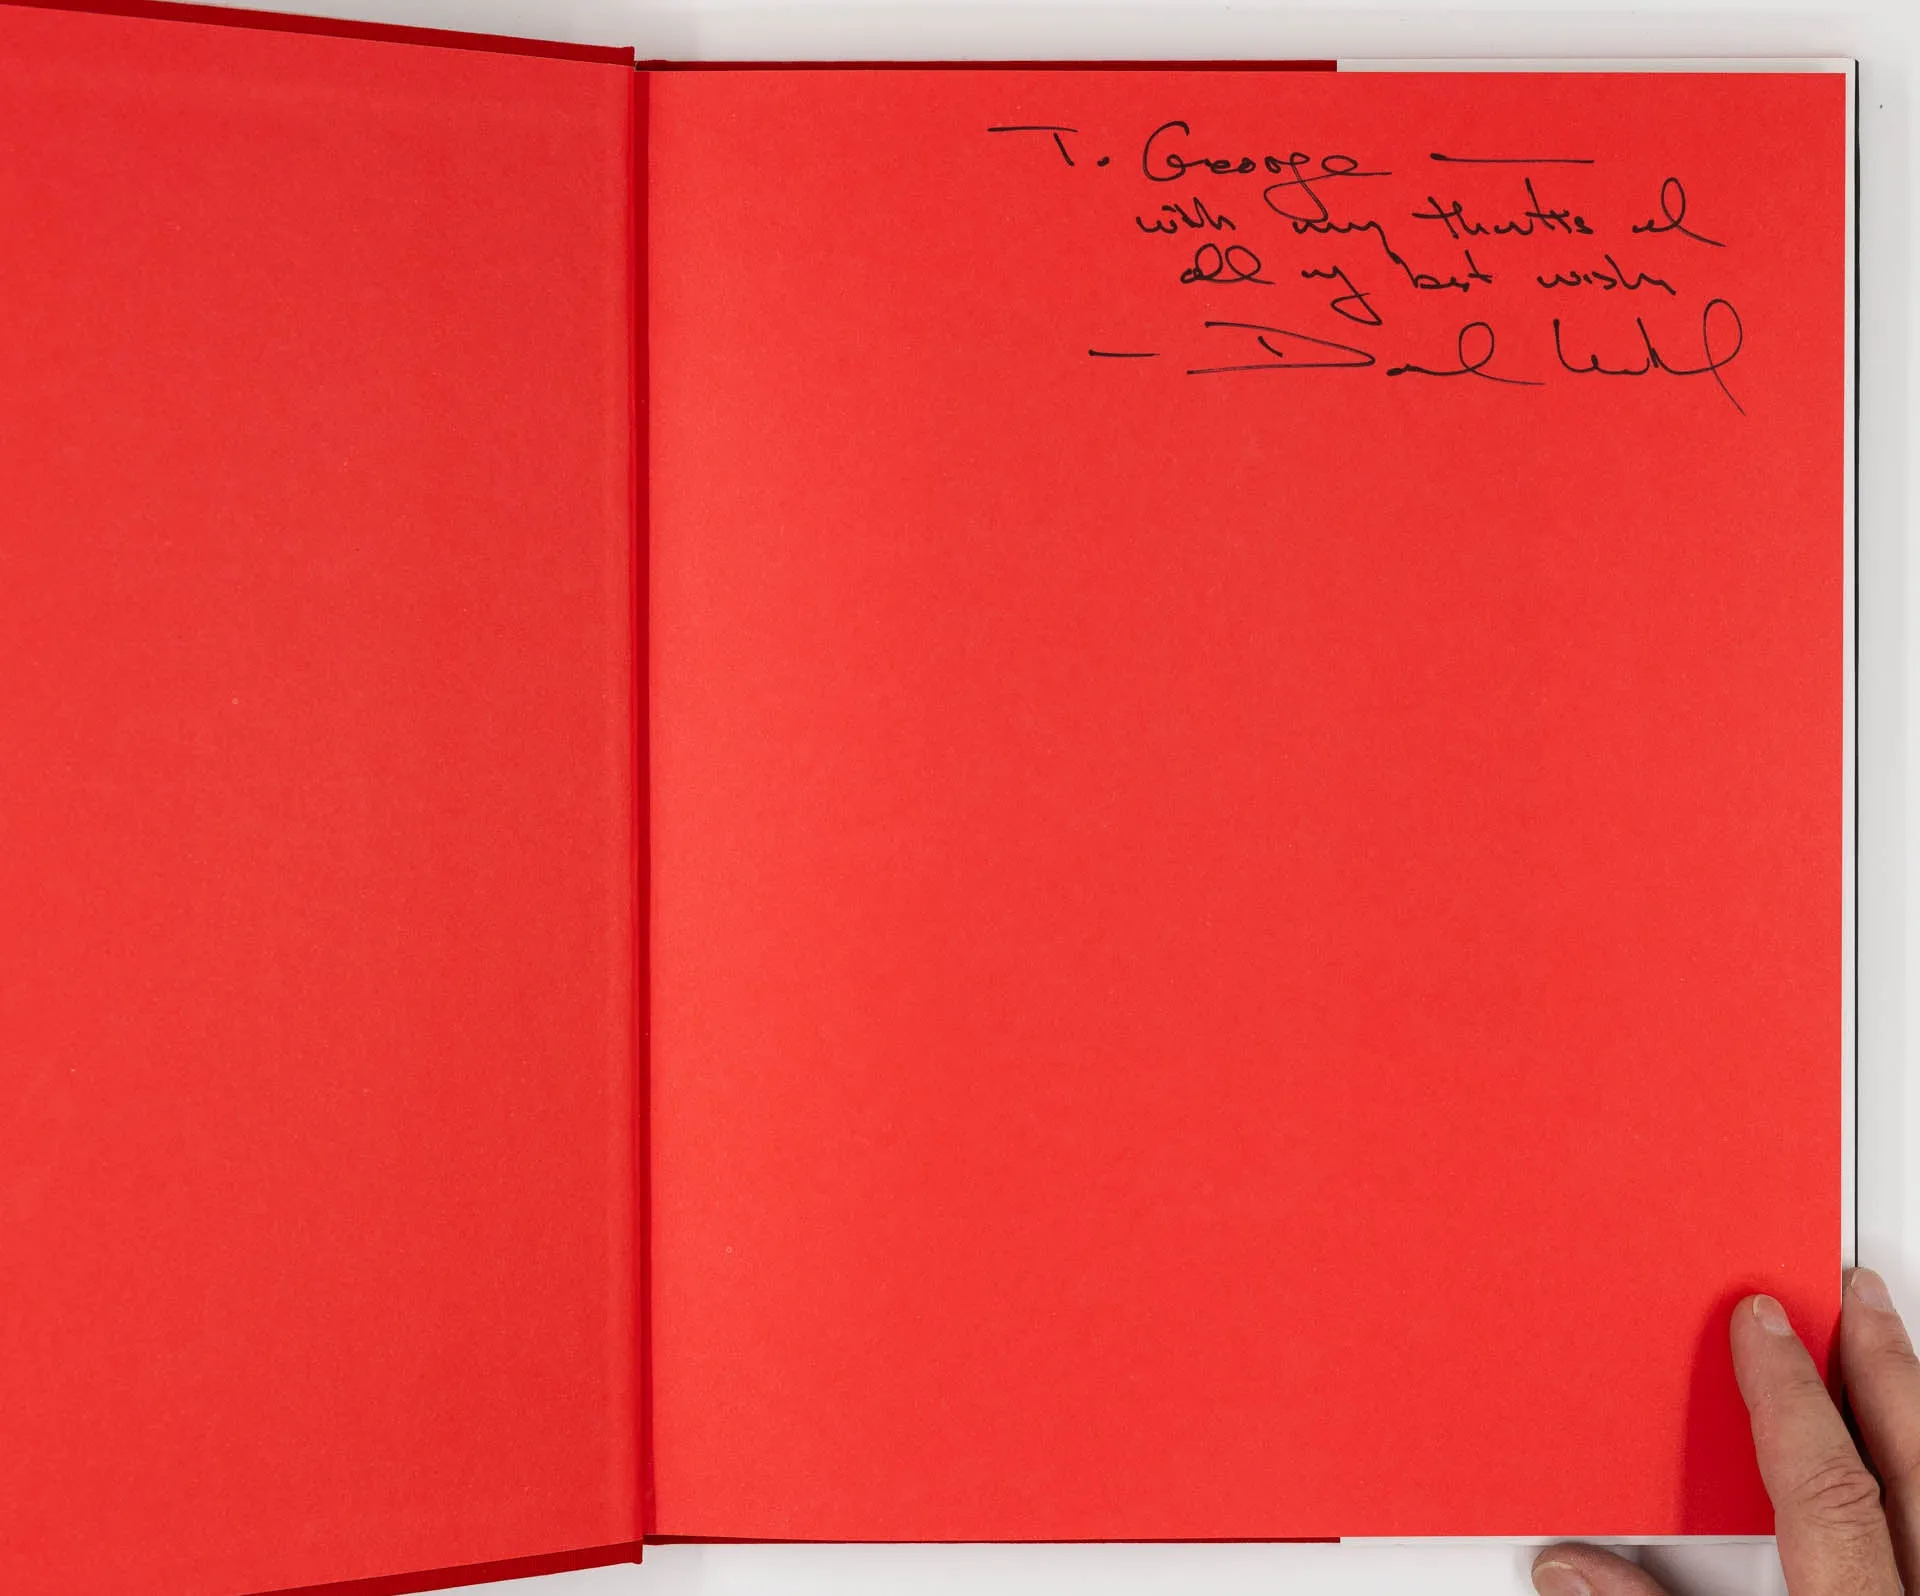 To George —
with my thanks and
all my best wishes
— David